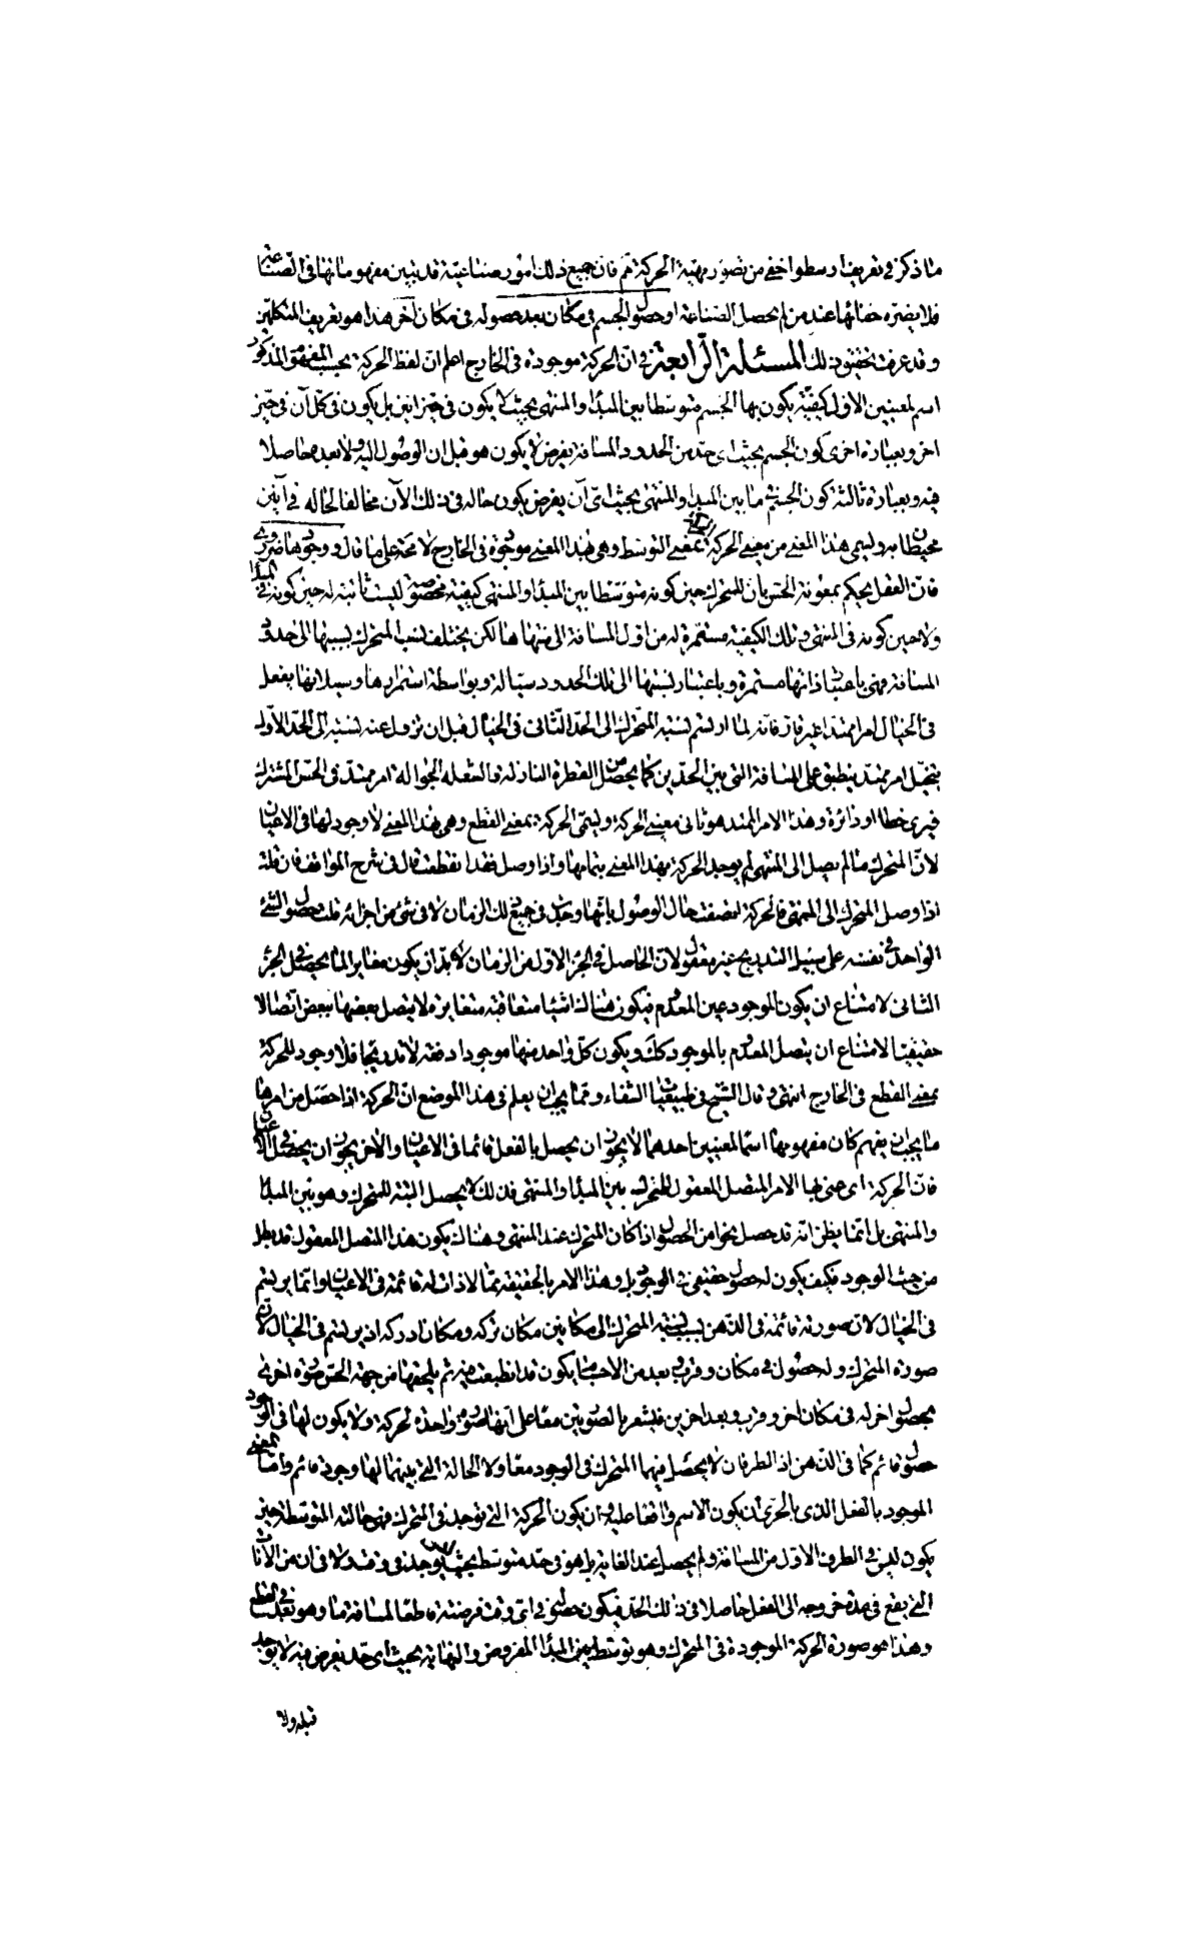 ما ذكر في تعريف ارسطو اخفى من تصور مهيّة الحركة ثم فان جميع ذلك امور صناعيّة قد تبين مفهوماتها في الصّناعة
فلا يضرّه خفائها عند من لم يحصل الصّناعة او حصول الجسم في مكان بعد حصوله في مكان آخر هذا هو تعريف المتكلّمين
و قد عرفت تحقيق ذلك المسئلة الرّابعة في انّ الحركة موجودة في الخارج اعلم انّ لفظ الحركة بحسب المفهوم المذكور
اسم لمعنيين الاول كيفيّة يكون بها الجسم متوسّطا بين المبدأ و المنتهى بحيث لا يكون في حيّز انين بل يكون في كلّ آن في حيّز
اخر و بعبارة اخرى كون الجسم بحيث اى حدّ من الحدود المسافة يفرض لا يكون هو قبل ان الوصول اليه و لا بعده حاصلا
فيه و بعبارة ثالثة كون الجسم فيما بين المبدأ و المنتهى بحيث اىّ آن يفرض يكون حاله في ذلك الآن مخالفا لحاله في آنين
محيطان به و ليسمى هذا المعنى من معنيى الحركة الحركة بمعنى التوسط و هى بهذا المعنى موجودة في الخارج لا محة على ما قال و وجودها ضرورى
فانّ العقل يحكم بمعونة الحس بان للمتحرك حين كونه متوسّطا بين المبدأ و المنتهى كيفيّة مخصوصة ليست ثابتة له حين كونه في المبدأ
و لا حين كونه في المنتهى و تلك الكيفيّة مستمرة له من اول المسافة الى منتهاها لكن يختلف نسب المتحرك بسببها الى حدود
المسافة فهى باعتبار ذاتها مستمرة و باعتبار نسبتها الى تلك الحدود سيّالة و بواسطة استمرارها و سيلانها يفعل
في الخيال امرا ممتدا غير قار فانّه لما ارتسم نسبة المتحرك الى الحدّ الثانى في الخيال قبل ان تزول عنه نسبته الى الحدّ الاوّل
يتخيّل امر ممتد ينطبق على المسافة التى بين الحدّين كما يحصل من القطرة النازلة و الشعلة الجوالة امر ممتدّ في الحس المشترك
فيرى خطا او دائرة و هذا الامر الممتد هو ثانى معنيى الحركة و ليسمّى الحركة بمعنى القطع و هى بهذا المعنى لا وجود لها في الاعيان
لانّ المتحرك ما لم يصل الى المنتهى لم يوجد الحركة بهذا المعنى بتمامها و اذا وصل فقد انقطعت قال في شرح المواقف فان قلت
اذا وصل المتحرك الى المنتهى فالحركة اتصفت حال الوصول بانّها وجدت في جميع ذلك الزمان لا في شئ من اجزائه قلت حصول الشئ
الواحد في نفسه على سبيل التدريج غير معقول لانّ الحاصل في الجزء الاوّل من الزمان لا بدّ ان يكون مغايرا لما يحصل في الجزء
الثانى لامتناع ان يكون الموجود عين المعدوم فيكون هناك اشياء متعاقبة متغايرة لا يتصل بعضها ببعض اتّصالا
حقيقيّا لامتناع ان يتصل المعدوم بالموجود كك و يكون كلّ واحد منها موجودا دفعة لا تدريجا فلا وجود للحركة
بمعنى القطع في الخارج انتهى و قال الشّيخ في طبيعيّات الشّفاء و ممّا يجب ان يعلم في هذا الموضع انّ الحركة اذا حصّل من امرها
ما يجب ان يفهم كان مفهومها اسما لمعنيين احدهما لا يجوز ان يحصل بالفعل قائما في الاعيان و الاخر يجوز ان يحصل في الاعيان
فانّ الحركة اى عنى بها الامر المتصل المعقول للمتحرك بين المبدأ و المنتهى فذلك لا يحصل البتة للمتحرك و هو بين المبدأ
و المنتهى بل انّما يظن انّه قد حصل نحوا من الحصول اذا كان المتحرك عند المنتهى و هناك يكون هذا المتصل المعقول قد بطل
من حيث الوجود فكيف يكون له حصول حقيقى في الوجود بل و هذا الامر بالحقيقة ممّا لا ذات له قائمة في الاعيان و انّما يرتسم
في الخيال لان صورته قائمة في الذّهن بسبب نسبة المتحرك الى مكانين مكان تركه و مكان ادركه او يرتسم في الخيال لانّ
صورة المتحرك و له حصول في مكان و قرب و بعد من الاجسام يكون قد انطبعت فيه ثم يلحقها من جهة الحس صورة اخرى
بحصول اخر له في مكان اخر و قرب و بعد اخرين فيشعر بالصورتين معا على انّها صورة واحدة لحركة و لا يكون لها في الوجود
حصول قائم كما في الذّهن اذ الطرفان لا يحصل فيهما المتحرك في الوجود معا و لا الحالة التى بينهما لها وجود قائم و امّا المعنى
الموجود بالفعل الذى بالحرى ان يكون الاسم واقعا عليه و ان يكون الحركة التى توجد في المتحرك فهى حالته المتوسطة حين
يكون ليس في الطرف الاوّل من المسافة و لم يحصل عند الغاية بل هو في حدّ متوسط بحيث ليس يوجد في و لا في ان من الآنات
التى يقع في مدة خروجه الى الفعل حاصلا في ذلك الحد فيكون حصوله في اىّ وقت فرضته قاطعا لمسافة ما و هو بعد في القطع
و هذا هو صورة الحركة الموجودة في المتحرك و هو توسط بين المبدأ المفروض و النهاية بحيث اى حدّ يفرض فيه لا يوجد
قبله و لا